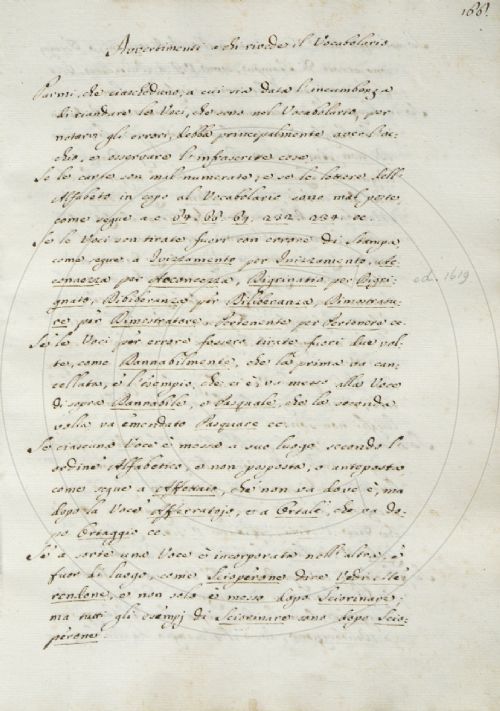 166.
Avvertimenti a chi rivede il Vocabolario
Parmi, che ciascheduno, a cui sia data l'incumbenza
di riandare le Voci, che sono nel Vocabolario, per
notarvi gli errori, debba principalmente aver l'oc-
chio, e osservare l'infrascrite cose
Se le carte son mal numerate, e se le lettere dell'
Alfabeto in capo al Vocabolario sono mal poste,
come segue a c. 64. 66. 69. 232. 234. ec.
Se le Voci son tirate fuori con errore di Stampa
come segue a Inizzamento per Inizzamento,
per Acconcezza, Bigrinatio per Bigri-
gnato, Bibideranza per Biliberanza, Bimostratu-
re per Bimostratore, Pertenente per Pertenere ec.
ed. 1619
Se le Voci per errore fossero tirate fuori due vol-
te, come Bannabilmente, che la prima va can-
cellata, e l'esempio, che ci è, va messo alla Voce
di sopra Bannabile, e Pasquale, che la seconda
volta va emendato Pasquare ec.
Se ciascuna Voce è messa a suo luogo secondo l'
ordine Alfabetico, e non posposta, o anteposta
come segue a Affettato, che non va dove è, ma
dopo la Voce Afferratojo, e a Ortale, che va do-
po Ortaggio ec.
Se a sorte una Voce è incorporata nell'altra, è
fuor di luogo, come Scioperone dice Vedi Ste-
rendone, e non solo è messo dopo Sciorinare;
ma tutti gli esempj di Sciorinare sono dopo Scio-
perone.